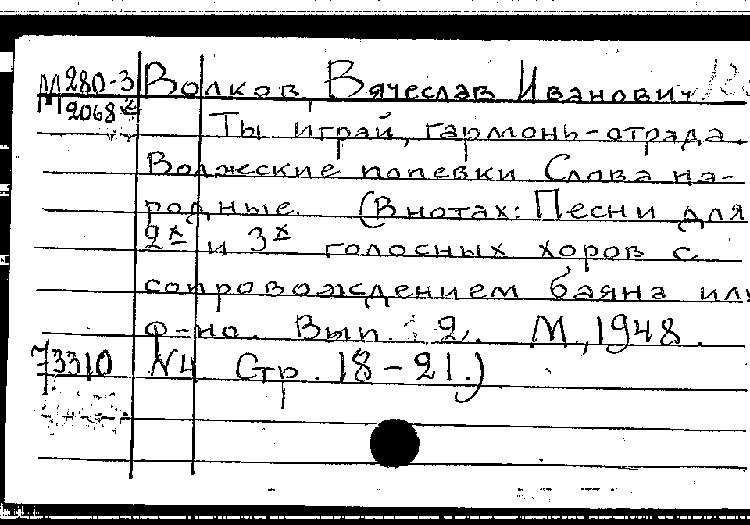 М280-3 Волков, Вячеслав Иванович
2068
Ты играй, гармонь-отрада.
Волжские попевки Слова на-
родные. (В нотах: Песни для
2х и 3х голосных хоров с
сопровождением баяна или
ф-но. Вып. 2. М, 1948.
73310 N4 Стр. 18-21.)